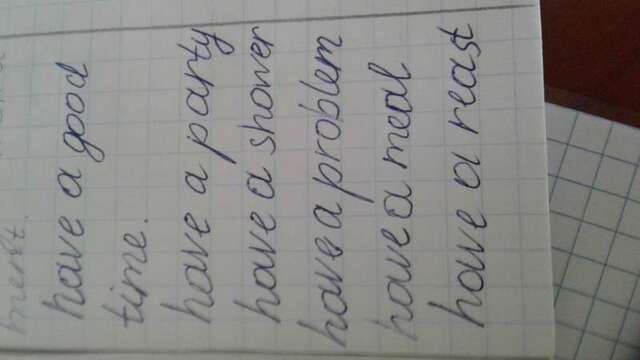 ment.
have a good
time.
have a party
have a shower
have a problem
have a meal
have a reast